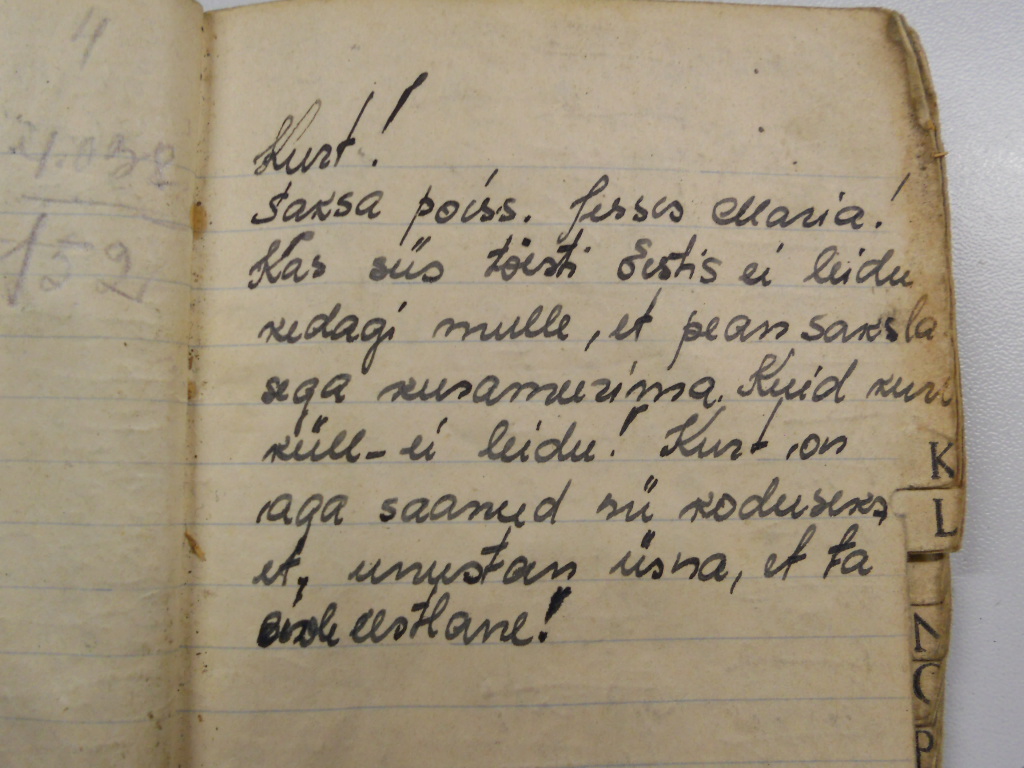 4
4.032
152
Kurt!
Saksa poiss. Jessos Maria!
Kas siis tõesti Eestis ei leidu
kedagi mulle, et pean saksla
sega kusamerima. Kuid kuri
küll - ei leidu! Kurt on
aga saanud nii koduseks
et, unustan üsna, et ta
eestlane!
K
L
N
O
P